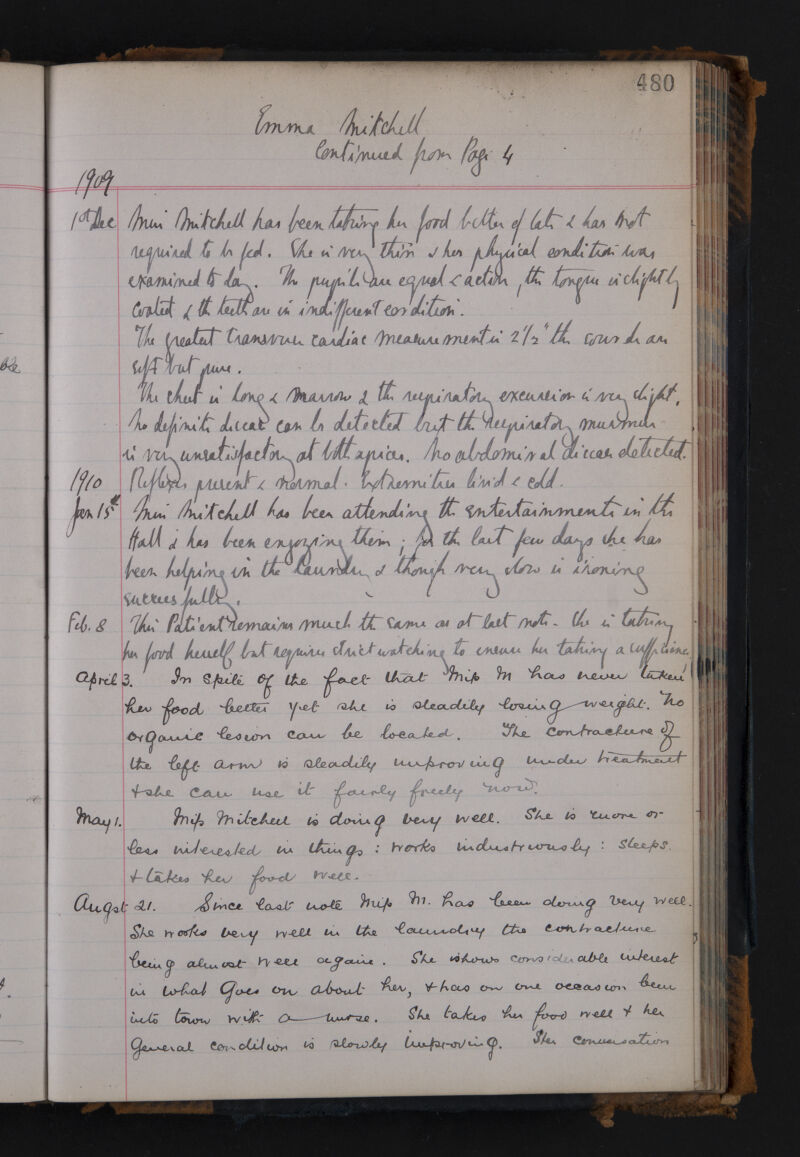 480
Emma Mitchell
Continued from Page 4
1909
1st Dec Miss Mitchell has been taking her food better of late & has not
required to be fed. She is very thin & her physical condition was
examined to day. The pupils are equal & active, the tongue is slightly
coated & the teeth are in indifferent condition.
The greatest transverse cardiac measurement is 2½" the sounds are
soft but pure.
The chest is long & narrow & the respiratory excursion is very slight.
No definite disease can be detected but the respiratory murmur
is very unsatisfactory at both apices. No abdominal disease detected.
1910 Reflexes present & normal. Extremities livid & cold.
Jan 15th Miss Mitchell has been attending the entertainments in the
Hall & has been enjoying them; for the last few days she has
been helping in the laundry & though very slow is ironing
successfully.
Feb. 8 This Patient remains much the same as at last note. She is taking
her food herself but requires strict watching to ensure her taking a sufficiency
April 3. In spite of the fact that Miss M has never taken
her food better yet she is steadily losing weight. No
organic lesion can be located. The contracture of
the left arm is steadily improving under treatment
& she can use it fairly freely now.
May 1. Miss Mitchell is doing very well. She is more or
less interested in things: works industriously: sleeps.
& takes her food well.
Augst 21. Since last note Miss M. has been doing very well.
She works very well in the laundry the contracture
being almost well again. She shows considerable interest
in what goes on about her, & has on one occasion been
into town with a nurse. She takes her food well & her
general condition is slowly improving. Her conversation